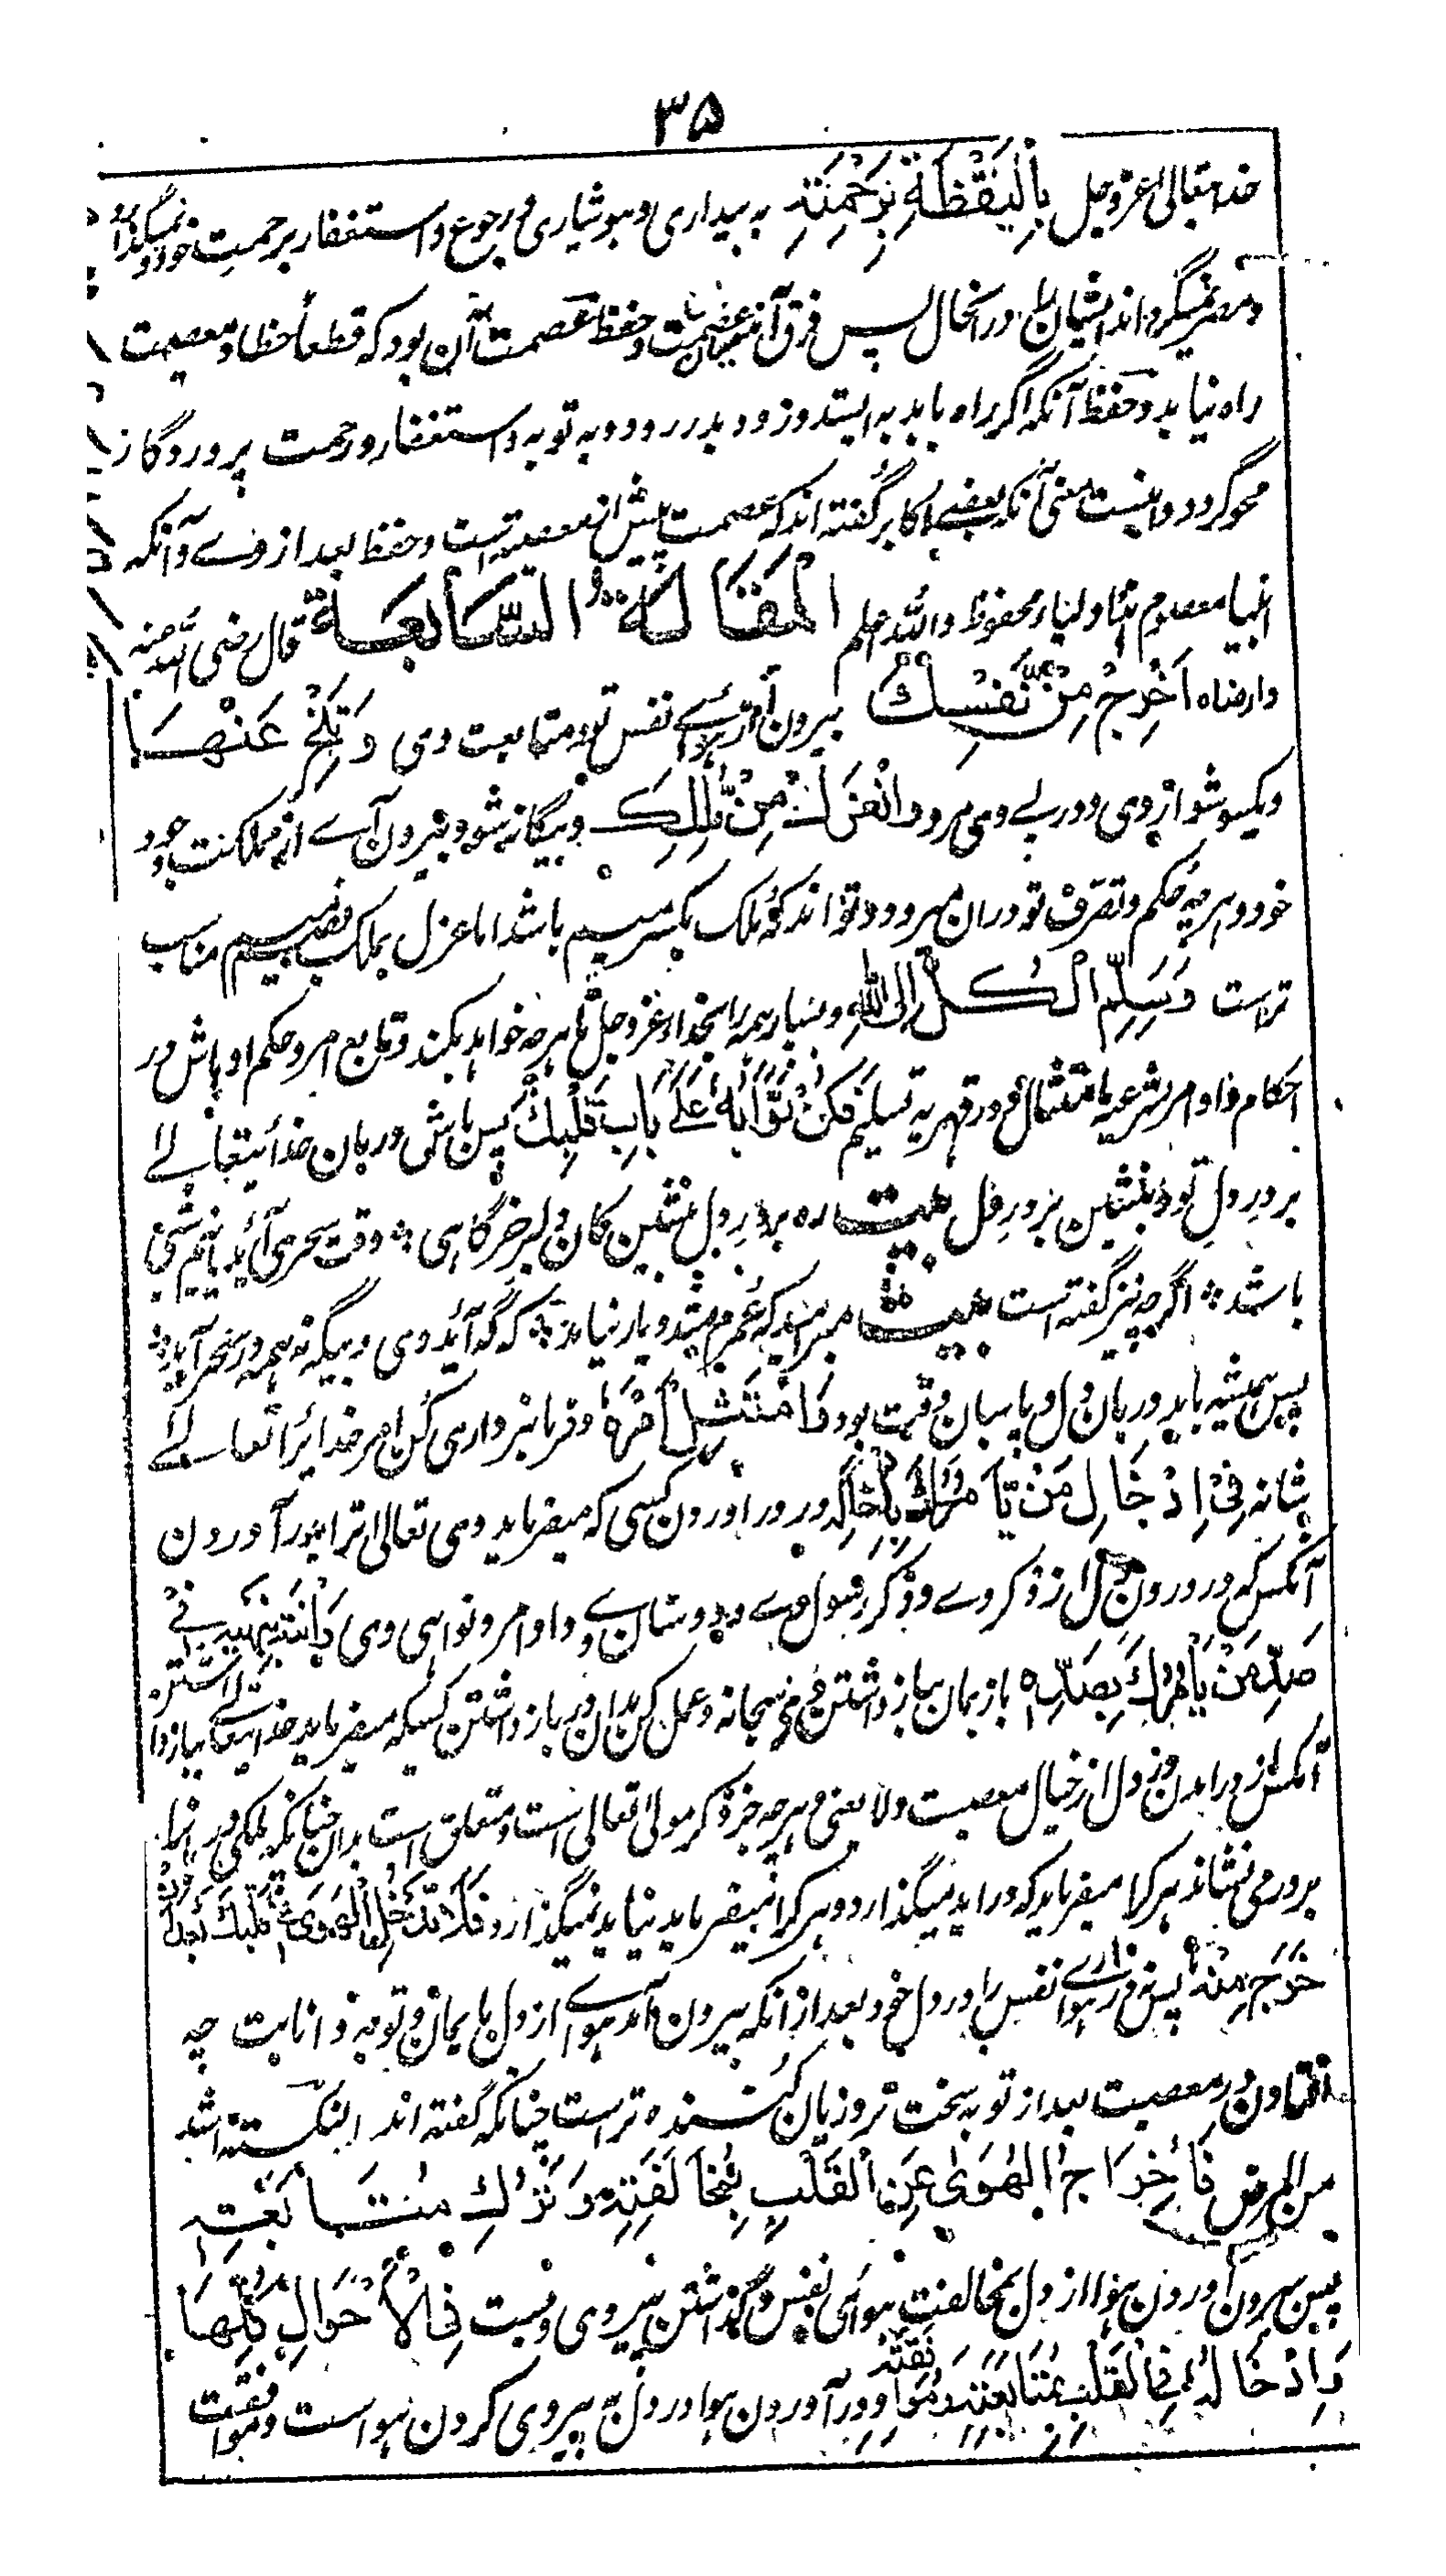 ۳۵
خدایتعالی عزوجل بِالْيَقْظَةِ بِرَحْمَتِهِ به بیداری و هوشیاری و رجوع و استغفار برحمت خود و نمیگذارد
و مصر نمیگرداند ایشان را در انحال پس فرق میان عصمت و حفظ عصمت آن بود که قطعاً خطا و معصیت
راه نیابد و حفظ آنکه اگر راه یابد به ایستد و زود بدر رود و به توبه و استغفار و رحمت پروردگار
محو گردد و اینست معنی آنکه بعضے اکابر گفته اند که عصمت پیش از معصیت است و حفظ بعد از وے و آنکه
انبیا معصوم اند و اولیا محفوظ والله اعلم اَلْمَقَالَةُ السَّابِعَةُ قال رضی الله عنه
وارضاه اُخْرُجْ مِنْ نَفْسِكَ بیرون آ از هوائے نفس تو و متابعت وی وَتَنَحَّ عَنْهَا
و یکسو شو از وی و در پے وی مرو وَانْعَزِلْ مِنْ مُلْكِكَ و بیگانه شو و بیرون آے از مملکت وجود
خود و هر چه حکم و تصرف تو دران میرود و تواند که ملک بکسر میم باشد اما عزل بملک بضم میم مناسب
تر است وَسَلِّمِ الْكُلَّ اِلَى اللهِ و بسپار همه را بخدا عزوجل تا هر چه خواهد بکند و تابع امر و حکم او باش در
احکام و اوامر شرعیه بامتثال و در قهریه تسلیم فَكُنْ بَوَّابَهُ عَلٰى بَابِ قَلْبِكَ پس باش دربان خدایتعالے
بر در دل تو و بنشین بر در دل بیت ره بر در دل نشین کان دلبر خرگاهی ؞ وقت سحری آید یا نیم شبی
باشد ؞ اگر چه نیز گفته است بیت مبر امید که عمرم بشد و یار نیامد ؞ که گه آید وی و بیگه نه همه در سحر آید ؞
پس همیشه باید دربان دل و پاسبان وقت بود وَامْتَثِلْ اَمْرَهٗ و فرمانبرداری کن امر خدایرا تعالے
شانه فِيْ اِدْخَالِ مَنْ يَأْمُرُكَ بِاِدْخَالِهٖ در در اوردن کسی که میفرماید وی تعالی ترا بدر آوردن
آنکس که در درون دل از ذکر وے و ذکر رسول وے و دوستان وے و اوامر و نواهی وی وَانْتَهِ نَهْيَهٗ فِيْ
صَدِّ مَنْ يَأْمُرُكَ بِصَدِّهٖ باز بمان بباز داشتن وی سبحانه و عمل کن بدان در باز داشتن کسیکه میفرماید خدایتعالے بباز داشتن
آنکس از درامدن در دل از خیال معصیت و لا یعنی و هر چه جز ذکر مولی تعالی است و متعلق است بدان چنانکه ملکی دربانرا
بر در می نشاند هر کرا میفرماید که دراید میگذارد و هر کرا میفرماید نیاید نمیگذارد فَلَا تُدْخِلِ الْهَوٰى فِيْ قَلْبِكَ بَعْدَ اَنْ
خَرَجَ مِنْهُ پس در میارے هوائے نفس را در دل خود بعد از انکه بیرون آمد هوائے از دل با یمان و توبه و انابت چه
افتادن در معصیت بعد از توبه سخت تر و زیان کننده تر است چنانکه گفته اند النکسة اشد
من المرض فَاِخْرَاجُ الْهَوٰى عَنِ الْقَلْبِ بِمُخَالَفَتِهٖ وَتَرْكِ مُتَابَعَتِهٖ
پس بیرون آوردن هوا از دل بمخالفت هوائی نفس و گذاشتن پیروی ویست فِي الْاَحْوَالِ كُلِّهَا
وَاِدْخَالُهٗ فِي الْقَلْبِ بِمُتَابَعَتِهٖ وَمُوَافَقَتِهٖ و در آوردن هوا در دل به پیروی کردن هواست و موافقت